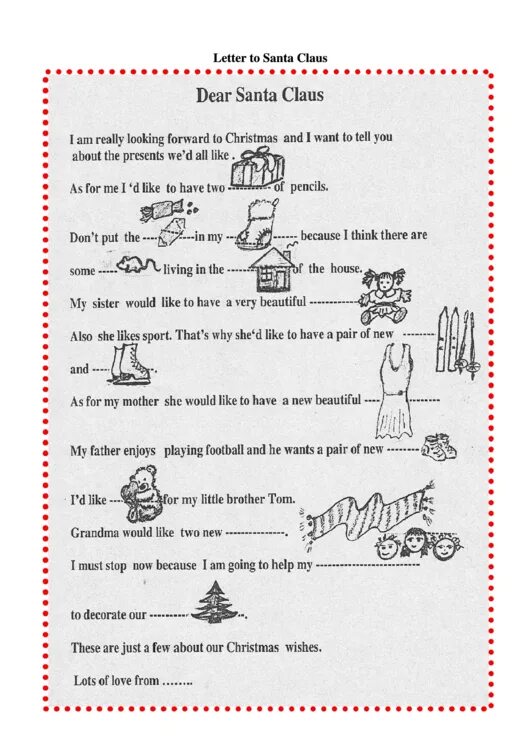 Letter to Santa Claus
Dear Santa Claus
I am really looking forward to Christmas and I want to tell you
about the presents we'd all like .
As for me I 'd like to have two ---------- of pencils.
Don't put the ---- in my -- ----- because I think there are
some ---- living in the -------- of the house.
My sister would like to have a very beautiful ----------------
Also she likes sport. That's why she'd like to have a pair of new ------
and ----
As for my mother she would like to have a new beautiful ----
My father enjoys playing football and he wants a pair of new -------
I'd like --- for my little brother Tom.
Grandma would like two new ------------.
I must stop now because I am going to help my ---------------------
to decorate our --------
These are just a few about our Christmas wishes.
Lots of love from ........